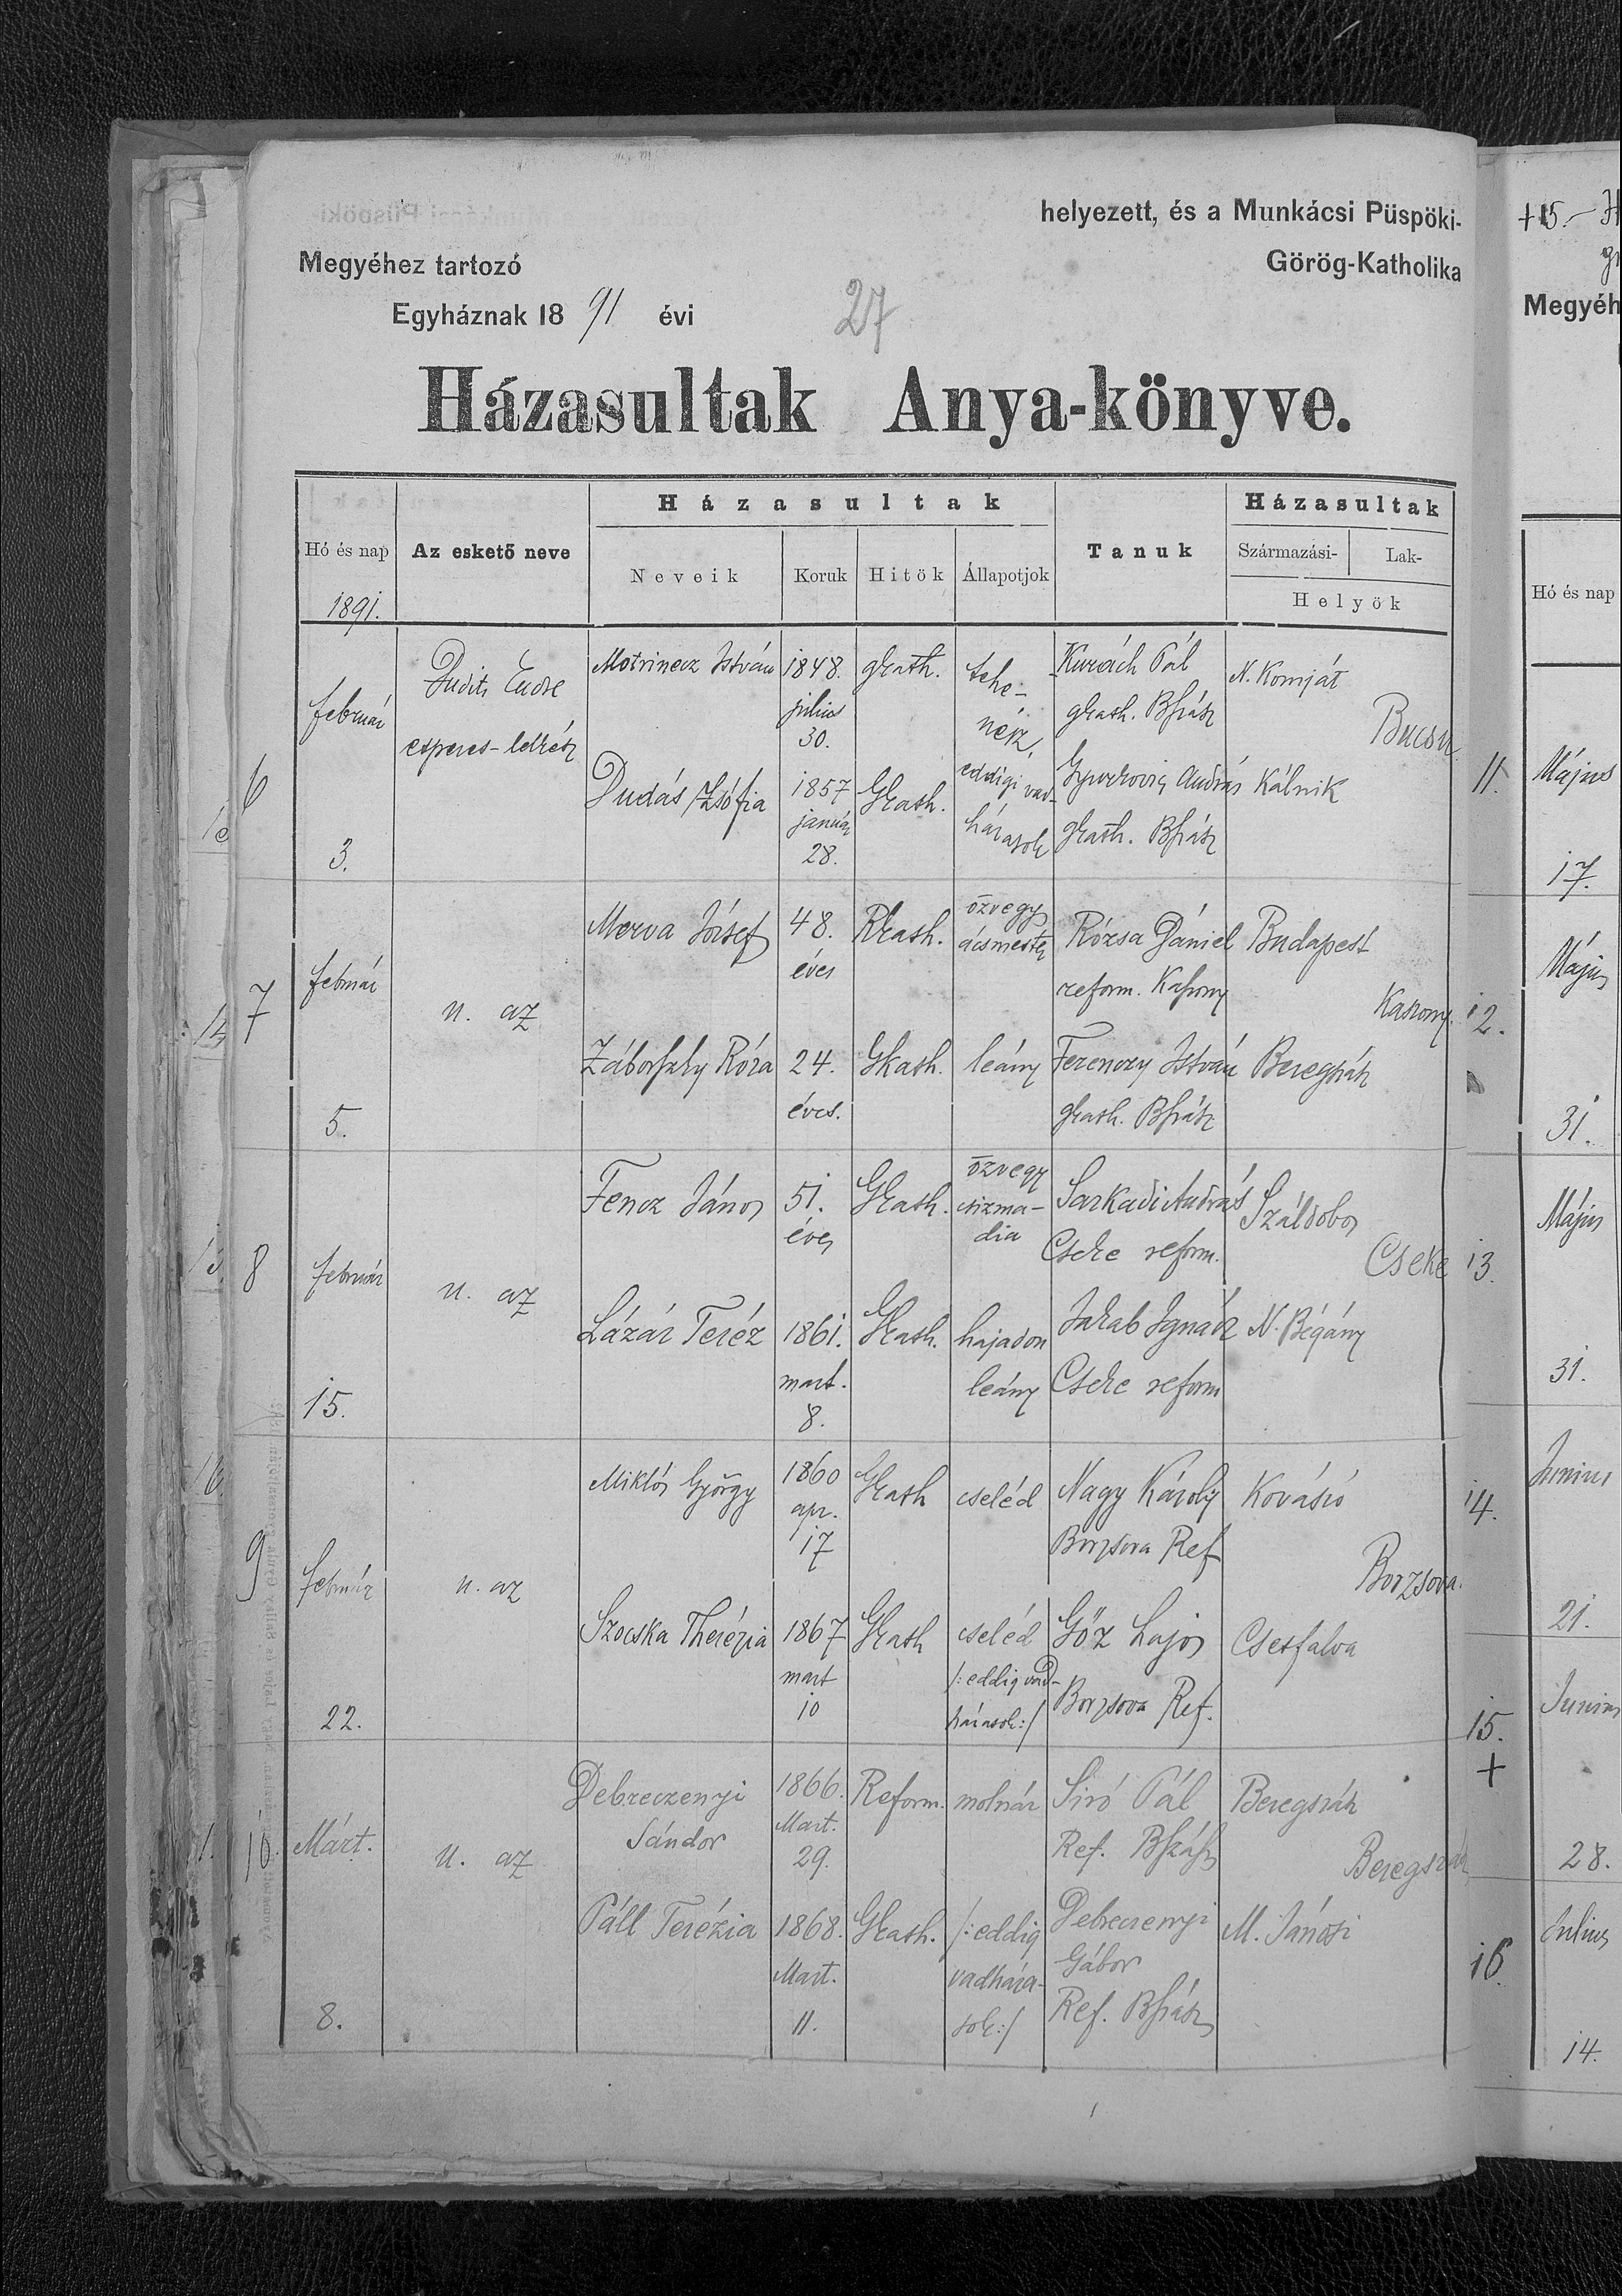 helyezett, és a Munkácsi Püspöki-
Megyéhez tartozó
Görög-Katholika
Egyháznak 1891 évi
27
Házasultak Anya-könyve.
Hó és nap
1891.
Az eskető neve
Házasultak
Neveik
Koruk
Hitök
Állapotjok
Tanuk
Házasultak
Származási-
Lak-
Helyök
6
február
3.
Endre
esperes-lelkész
Motrinecz István
1848.
julius
30.
gkath.
tehe-
nész,
Kurách Pál
gkath. Bszász
N. Komját
Bucsu
Dudás Zsófia
1857
január
28.
Gkath.
eddigi vad-
házasok
András
gkath. Bszász
Kálnik
7
február
5.
u. az
Merva József
48.
éves
Rkath.
özvegy
ácsmester
Rózsa Dániel
reform. Kaszony
Budapest
Kaszony
Záborszky Róza
24.
éves.
Gkath.
leány
Ferenczy István
gkath. Bszász
Beregszász
8
február
15.
u. az
Fencz János
51.
éves
Gkath.
özvegy
csizma-
dia
Sarkadi András
Cseke reform.
Száldobos
Cseke
Lázár Teréz
1861.
mart.
8.
Gkath.
hajadon
leány
Jakab Ignácz
Cseke reform
N. Bégány
9
február
22.
u. az
Miklós György
1860
apr.
17
Gkath
cseléd
Nagy Károly
Borzsova Ref
Kovászó
Borzsova.
Szocska Therézia
1867
mart
10
Gkath
cseléd
/: eddig vad-
házasok :/
Gőz Lajos
Borzsova Ref.
Csesfalva
10.
Márt.
8.
u. az
Debreczenyi
Sándor
1866.
Mart.
29.
Reform.
molnár
Siró Pál
Ref. Bszász
Beregszász
Beregszász
Páll Terézia
1868.
Mart.
11.
Gkath.
/: eddig
vadháza-
sok :/
Debreczenyi
Gábor
Ref. Bszász
M. Jánosi
+15.
Megyéh
Hó és nap
11.
Május
17.
12.
Május
31.
13.
Május
31.
14.
Junius
21.
15.
+
Junius
28.
16.
Julius
14.